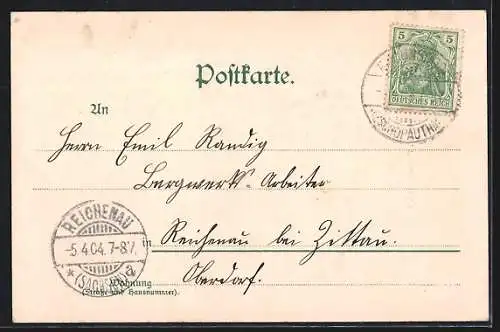 5 5
DEUTSCHES REICH
(ZSCHOPAUTHAL)
Postkarte.
An
Herrn Emil Randig
Bergwerks-Arbeiter
in Reichenau bei Zittau.
Oberdorf.
REICHENAU
-5.4.04. 7-8V.
* (SACHSEN) a
Wohnung
(Straße und Hausnummer).